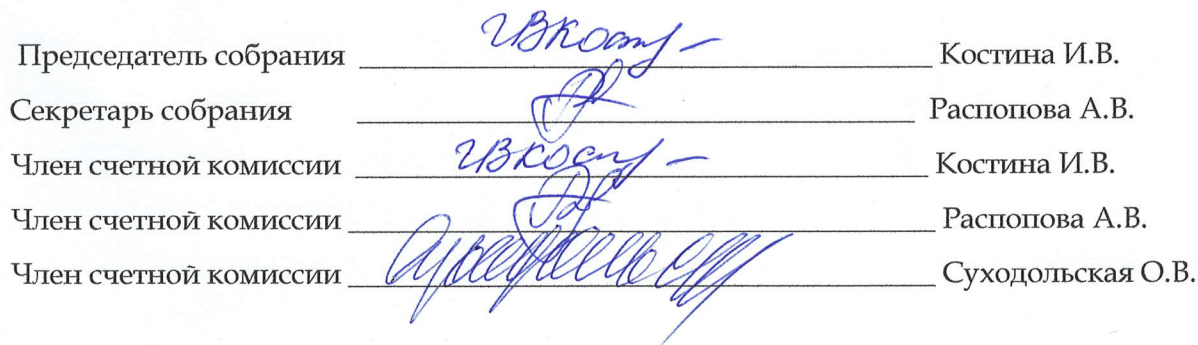 Председатель собрания Костина И.В.
Секретарь собрания Распопова А.В.
Член счетной комиссии Костина И.В.
Член счетной комиссии Распопова А.В.
Член счетной комиссии Суходольская О.В.